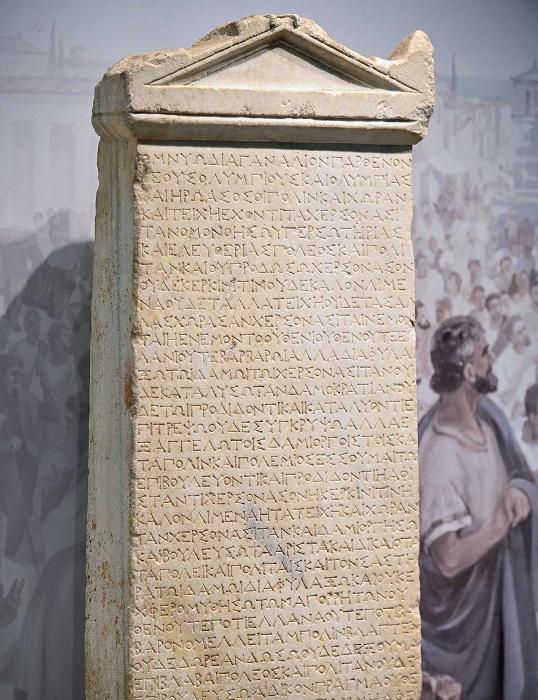 ΟΜΝΥΩΔΙΑΓΑΝΑΛΙΟΝΠΑΡΘΕΝΟΝ
ΕΟΥΣΟΛΥΜΠΙΟΥΣΚΑΙΟΛΥΜΠΙΑΣ
ΚΑΙΗΡΩΑΣΟΣΟΙΠΟΛΙΝΚΑΙΧΩΡΑΝ
ΚΑΙΤΕΙΧΗΕΧΟΝΤΙΤΑΧΕΡΣΟΝΑΣΙ
ΤΑΝΟΜΟΝΟΗΣΩΥΠΕΡΣΩΤΗΡΙΑΣ
ΚΑΙΕΛΕΥΘΕΡΙΑΣΠΟΛΕΟΣΚΑΙΠΟΛΙ
ΤΑΝΚΑΙΟΥΠΡΟΔΩΣΩΧΕΡΣΟΝΑΣΟΝ
ΟΥΔΕΚΕΡΚΙΝΙΤΙΝΟΥΔΕΚΑΛΟΝΛΙΜΕ
ΝΑΟΥΔΕΤΑΛΛΑΤΕΙΧΗΟΥΔΕΤΑΣΑΛ
ΛΑΣΧΩΡΑΣΑΝΧΕΡΣΟΝΑΣΙΤΑΙΝΕΜΟΝ
ΤΑΙΗΕΝΕΜΟΝΤΟΟΥΘΕΝΙΟΥΘΕΝΟΥΤΕΕΛ
ΛΑΝΙΟΥΤΕΒΑΡΒΑΡΩΙΑΛΛΑΔΙΑΦΥΛΑ
ΞΩΤΩΙΔΑΜΩΙΤΩΙΧΕΡΣΟΝΑΣΙΤΑΝΟΥ
ΔΕΚΑΤΑΛΥΣΩΤΑΝΔΑΜΟΚΡΑΤΙΑΝΟΥ
ΔΕΤΩΙΠΡΟΔΙΔΟΝΤΙΚΑΙΚΑΤΑΛΥΟΝΤΙΕ
ΠΙΤΡΕΨΩΟΥΔΕΣΥΓΚΡΥΨΩΑΛΛΑΕ
ΞΑΓΓΕΛΩΤΟΙΣΔΑΜΙΟΡΓΟΙΣΤΟΙΣΚΑ
ΤΑΠΟΛΙΝΚΑΙΠΟΛΕΜΙΟΣΕΣΣΟΥΜΑΙΤΩΙ
ΕΠΙΒΟΥΛΕΥΟΝΤΙΚΑΙΠΡΟΔΙΔΟΝΤΙΗΑΦΙ
ΣΤΑΝΤΙΧΕΡΣΟΝΑΣΟΝΗΚΕΡΚΙΝΙΤΙΝΗ
ΚΑΛΟΝΛΙΜΕΝΑΗΤΑΤΕΙΧΗΚΑΙΧΩΡΑΝ
ΤΑΝΧΕΡΣΟΝΑΣΙΤΑΝΚΑΙΔΑΜΙΟΡΓΗΣΩ
ΚΑΙΒΟΥΛΕΥΣΩΤΑΑΡΙΣΤΑΚΑΙΔΙΚΑΙΟΤΑ
ΤΑΠΟΛΕΙΚΑΙΠΟΛΙΤΑΙΣΚΑΙΤΟΝΣΑΣΤΗ
ΡΑΤΩΙΔΑΜΩΙΔΙΑΦΥΛΑΞΩΚΑΙΟΥΚΕ
ΧΦΕΡΟΜΥΘΗΣΩΤΩΜΑΠΟΡΡΗΤΩΝΟΥ
ΘΕΝΟΥΤΕΠΟΤΙΕΛΛΑΝΑΟΥΤΕΠΟΤΙΒΑΡ
ΒΑΡΟΝΟΜΕΛΛΕΙΤΑΜΠΟΛΙΝΒΛΑΠΤΕΙΝ
ΟΥΔΕΔΩΡΕΑΝΔΩΣΩΟΥΔΕΔΕΞΟΥΜ
ΕΠΙΒΛΑΒΑΙΠΟΛΕΟΣΚΑΙΠΟΛΙΤΑΝΟΥΔΕ